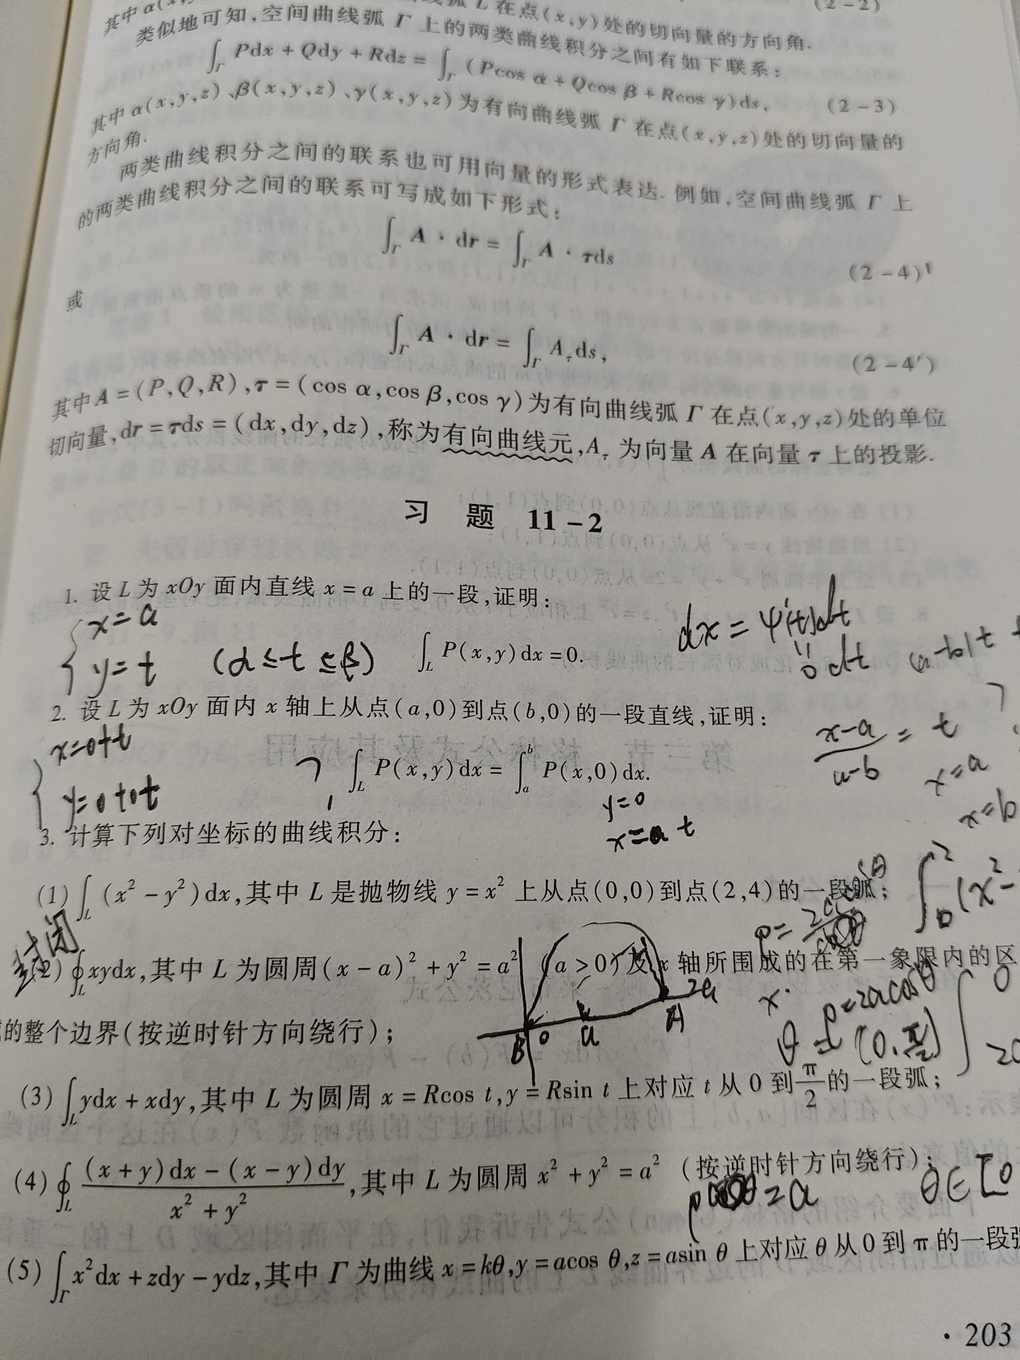 L 在点(x,y)处的切向量的方向角. (2-2)
类似地可知,空间曲线弧 Γ 上的两类曲线积分之间有如下联系:
∫_Γ Pdx + Qdy + Rdz = ∫_Γ (Pcos α + Qcos β + Rcos γ)ds, (2-3)
其中 α(x,y,z)、β(x,y,z)、γ(x,y,z)为有向曲线弧 Γ 在点(x,y,z)处的切向量的
方向角.
两类曲线积分之间的联系也可用向量的形式表达. 例如,空间曲线弧 Γ 上
的两类曲线积分之间的联系可写成如下形式:
∫_Γ A · dr = ∫_Γ A · τds (2-4)
或
∫_Γ A · dr = ∫_Γ A_τ ds, (2-4′)
其中 A = (P,Q,R),τ = (cos α,cos β,cos γ)为有向曲线弧 Γ 在点(x,y,z)处的单位
切向量,dr = τds = (dx,dy,dz),称为有向曲线元,A_τ 为向量 A 在向量 τ 上的投影.
习 题 11-2
1. 设 L 为 xOy 面内直线 x = a 上的一段,证明:
x=a
y=t (α≤t≤β)
∫_L P(x,y)dx = 0.
dx = φ'(t)dt
0 dt
2. 设 L 为 xOy 面内 x 轴上从点(a,0)到点(b,0)的一段直线,证明:
x=0+t
y=0+0t
∫_L P(x,y)dx = ∫_a^b P(x,0)dx.
y=0
x=a t
x-a / a-b = t
x=a
x=b
3. 计算下列对坐标的曲线积分:
(1) ∫_L (x² - y²)dx,其中 L 是抛物线 y = x² 上从点(0,0)到点(2,4)的一段弧;
∫_0^2 (x²-
封闭
(2) ∮_L xydx,其中 L 为圆周(x - a)² + y² = a² (a > 0)及 x 轴所围成的在第一象限内的区
B 0 a A 2a
ρ=2acosθ
[0,π/2]
的整个边界(按逆时针方向绕行);
(3) ∫_L ydx + xdy,其中 L 为圆周 x = Rcos t,y = Rsin t 上对应 t 从 0 到 π/2 的一段弧;
(4) ∮_L ((x + y)dx - (x - y)dy)/(x² + y²),其中 L 为圆周 x² + y² = a² (按逆时针方向绕行);
=a θ∈[0
(5) ∫_Γ x²dx + zdy - ydz,其中 Γ 为曲线 x = kθ,y = acos θ,z = asin θ 上对应 θ 从 0 到 π 的一段弧
· 203